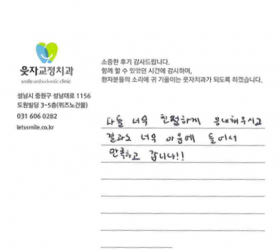 웃자교정치과
smile orthodontic clinic
성남시 중원구 성남대로 1156
도원빌딩 3-5층(위즈노건물)
031 606 0282
letvsmile.co.kr
소중한 후기 감사드립니다.
함께 할 수 있었던 시간에 감사하며,
환자분들의 소리에 귀 기울이는 웃자치과가 되도록 하겠습니다.
다들 너무 친절하게 응대해주시고
결과도 너무 마음에 들어서
만족하고 갑니다!!